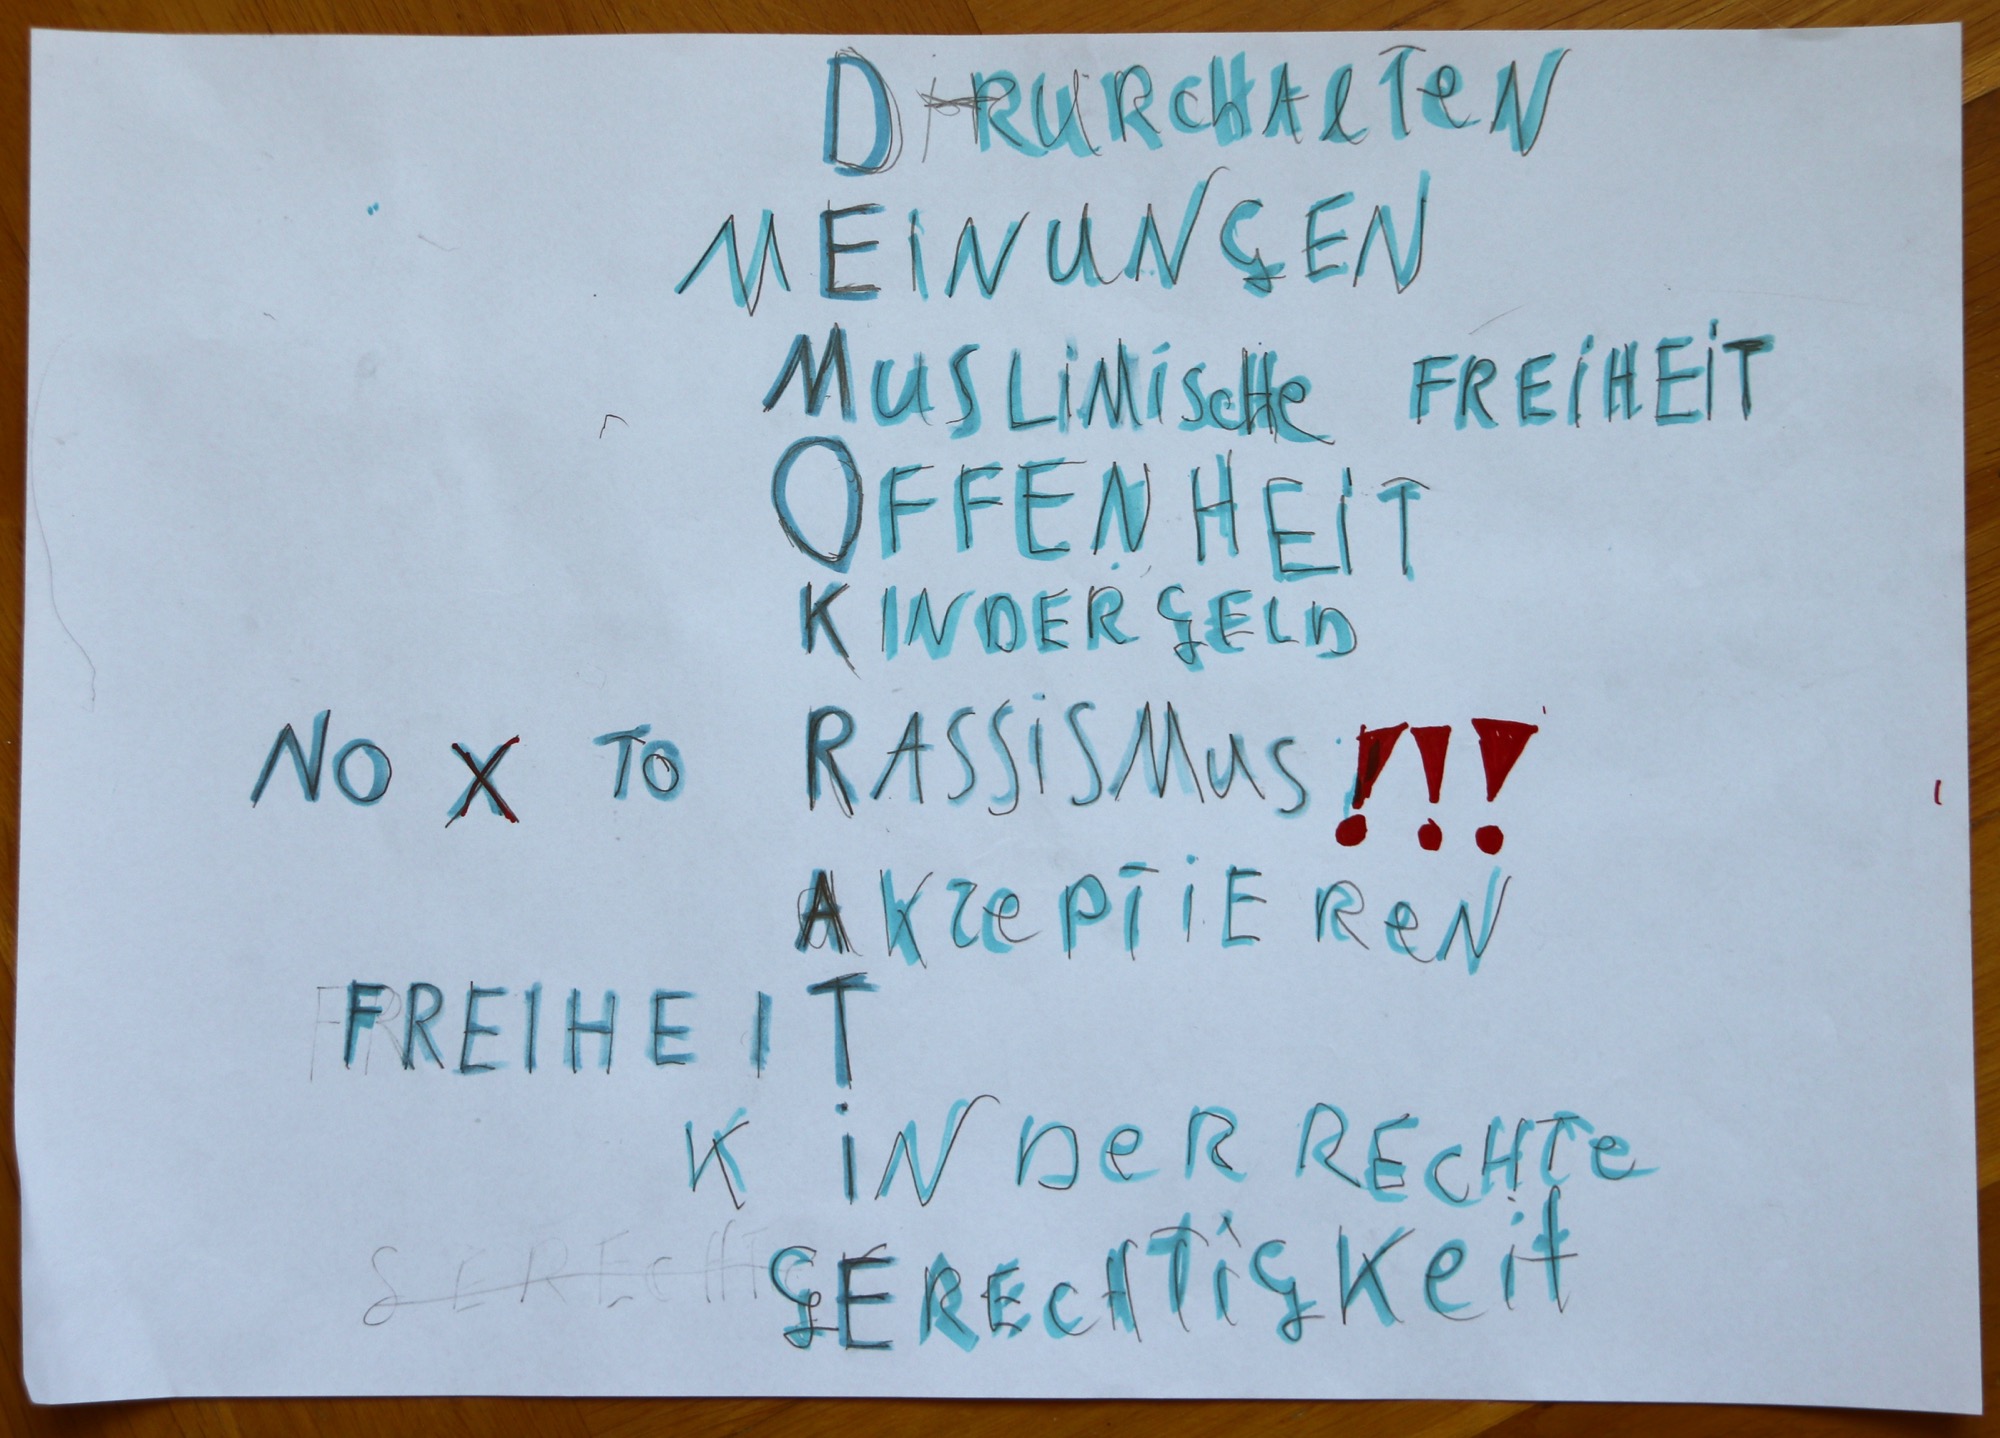 DRURCHALTEN
MEiNUNGEN
MUSLiMiscHe FREiHEiT
OFFENHEiT
KINDERGELD
NO X TO RASSiSMus !!!
AKzePTiEReN
FREIHEIT
KiNDeRRECHTe
GERECHTiGKeit